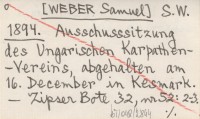 [WEBER Samuel] S.W.
1894. Ausschusssitzung
des Ungarischen Karpathen-
-Vereins, abgehalten am
16. December in Késmark.
— Zipser Bote 32, nr. 52: 2-3.